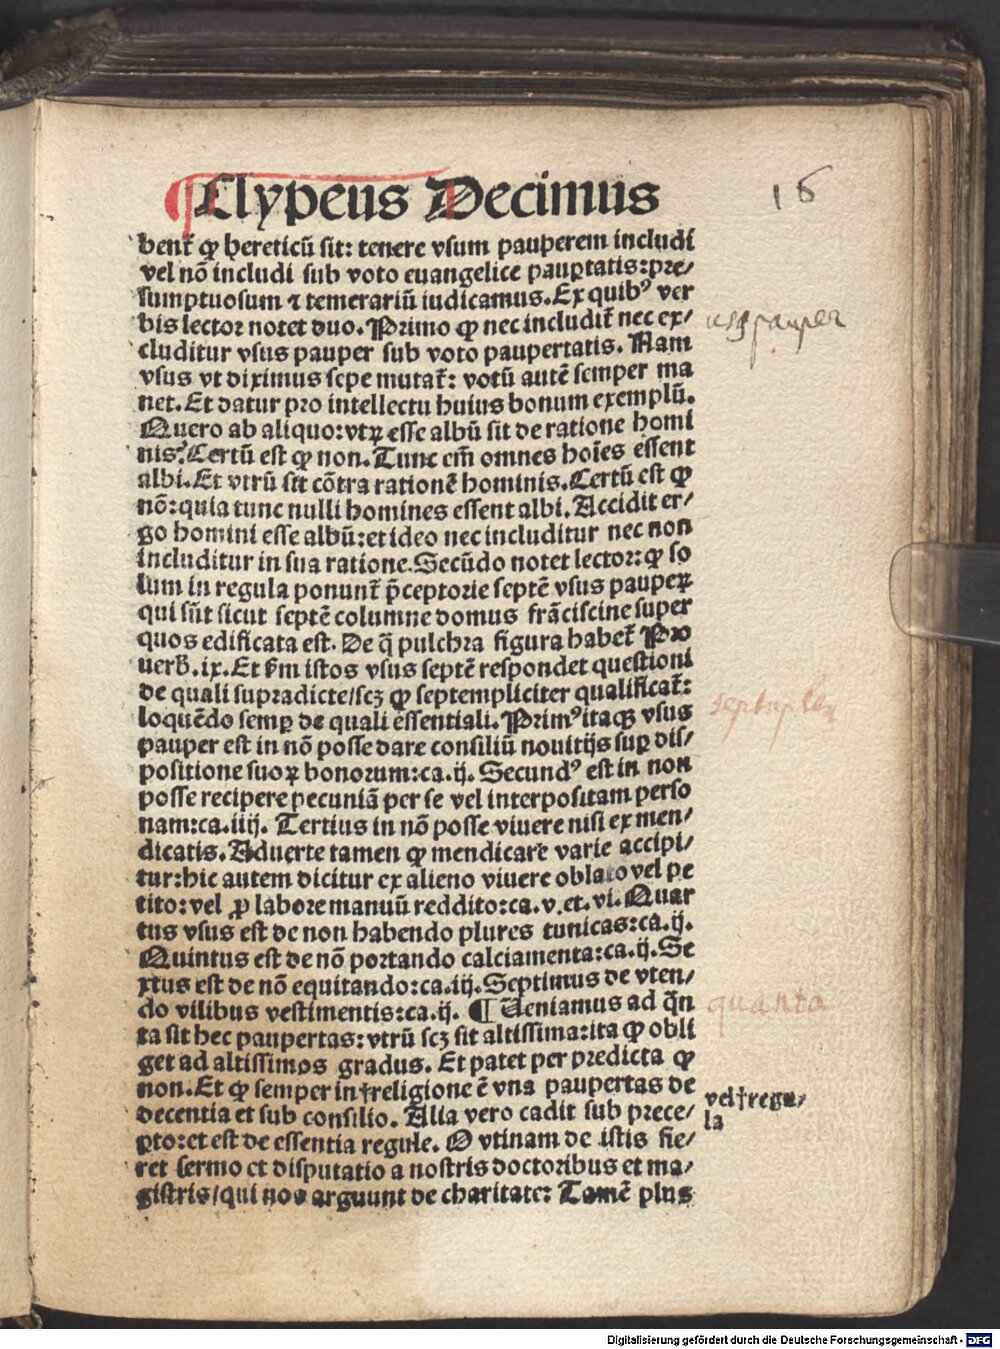 Clypeus Decimus
16
bent̃ ꝙ hereticũ sit: tenere vsum pauperem includi
vel nõ includi sub voto euangelice paupꝑtatis: pre/
sumptuosum ⁊ temerariũ iudicamus. Ex quibꝰ ver
bis lector notet duo. Primo ꝙ nec includit̃ nec ex/
cluditur vsus pauper sub voto paupertatis. Nam
vsus vt diximus sepe mutat̃: votũ autẽ semper ma
net. Et datur pro intellectu huius bonum exemplũ.
Quero ab aliquo: vtꝝ esse albũ sit de ratione homi
nis? Certũ est ꝙ non. Tunc em̃ omnes hoĩes essent
albi. Et vtrũ sit cõtra rationẽ hominis. Certũ est ꝙ
nõ: quia tunc nulli homines essent albi. Accidit er/
go homini esse albũ: et ideo nec includitur nec non
includitur in sua ratione. Secũdo notet lector: ꝙ so
lum in regula ponunt̃ p̃ceptorie septẽ vsus pauperꝝ
qui sũt sicut septẽ columne domus frãciscine super
quos edificata est. De q̃ pulchra figura habet̃ Pro
uerb̃. ix. Et ẜm istos vsus septẽ respondet questioni
de quali supradicte/scꝫ ꝙ septempliciter qualificat̃:
loquẽdo semꝑ de quali essentiali. Primꝰ itaqꝫ vsus
pauper est in nõ posse dare consiliũ nouitijs suꝑ dis/
positione suoꝝ bonorum: ca. ij. Secundꝰ est in non
posse recipere pecuniã per se vel interpositam perso
nam: ca. iiij. Tertius in nõ posse viuere nisi ex men/
dicatis. Aduerte tamen ꝙ mendicare varie accipi/
tur: hic autem dicitur ex alieno viuere oblato vel pe
tito: vel ꝓ labore manuũ reddito: ca. v. et. vi. Quar
tus vsus est de non habendo plures tunicas: ca. ij.
Quintus est de nõ portando calciamenta: ca. ij. Se
xtus est de nõ equitando: ca. iij. Septimus de vten/
do vilibus vestimentis: ca. ij. ¶ Veniamus ad q̃n
ta sit hec paupertas: vtrũ scꝫ sit altissima: ita ꝙ obli
get ad altissimos gradus. Et patet per predicta ꝙ
non. Et ꝙ semper in †religione ẽ vna paupertas de
decentia et sub consilio. Alia vero cadit sub prece/
pto: et est de essentia regule. O vtinam de istis fie/
ret sermo et disputatio a nostris doctoribus et ma/
gistris/qui nos arguunt de charitate: Tamẽ plus
pauper
quanta
vel †regu/
la
Digitalisierung gefördert durch die Deutsche Forschungsgemeinschaft - DFG